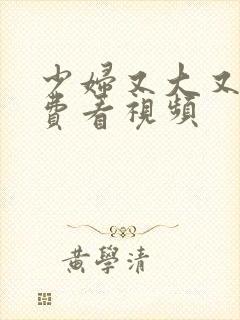 少婦又大又
費看視頻
黃學清